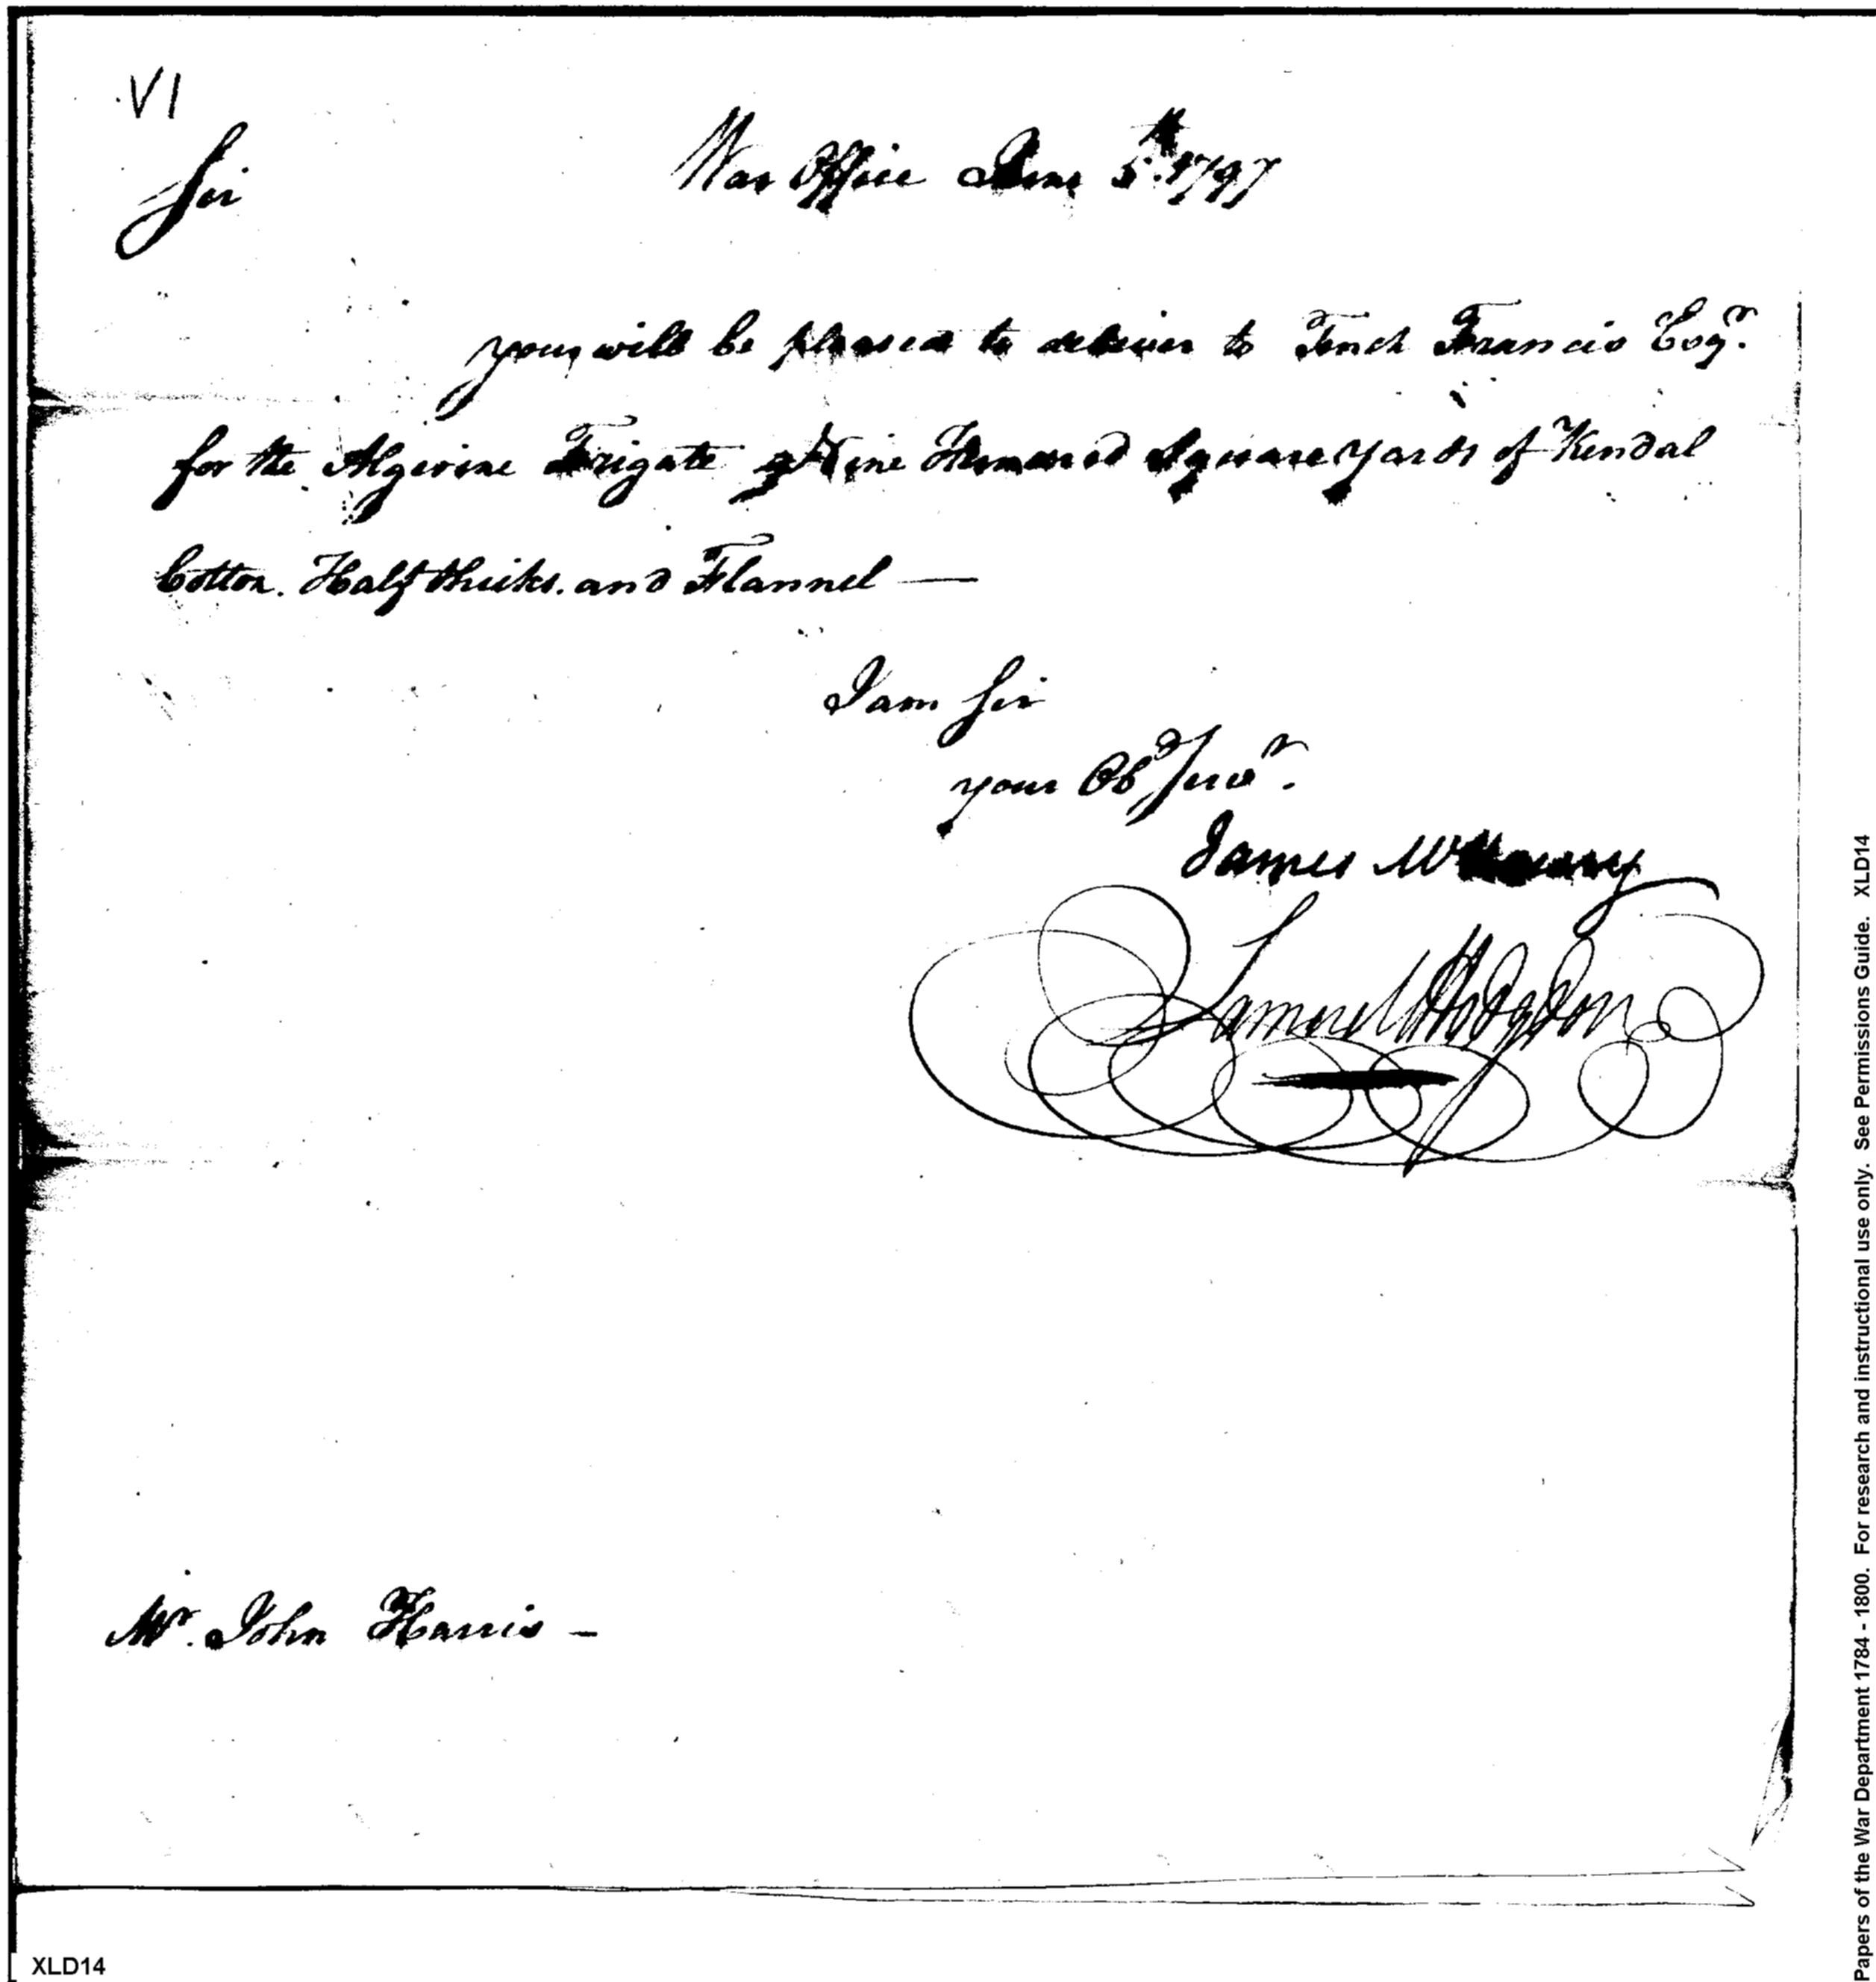 VI
War Office June 5th. 1797
Sir
you will be pleased to deliver to Tench Francis Esqr.
for the Algerine Frigate Nine Hundred Square yards of Kendal
Cotton. Half thicks. and Flannel —
I am Sir
your Obd Servt.
James McHenry
Samuel Hodgdon
Mr. John Harris —
XLD14
Papers of the War Department 1784 - 1800. For research and instructional use only. See Permissions Guide. XLD14